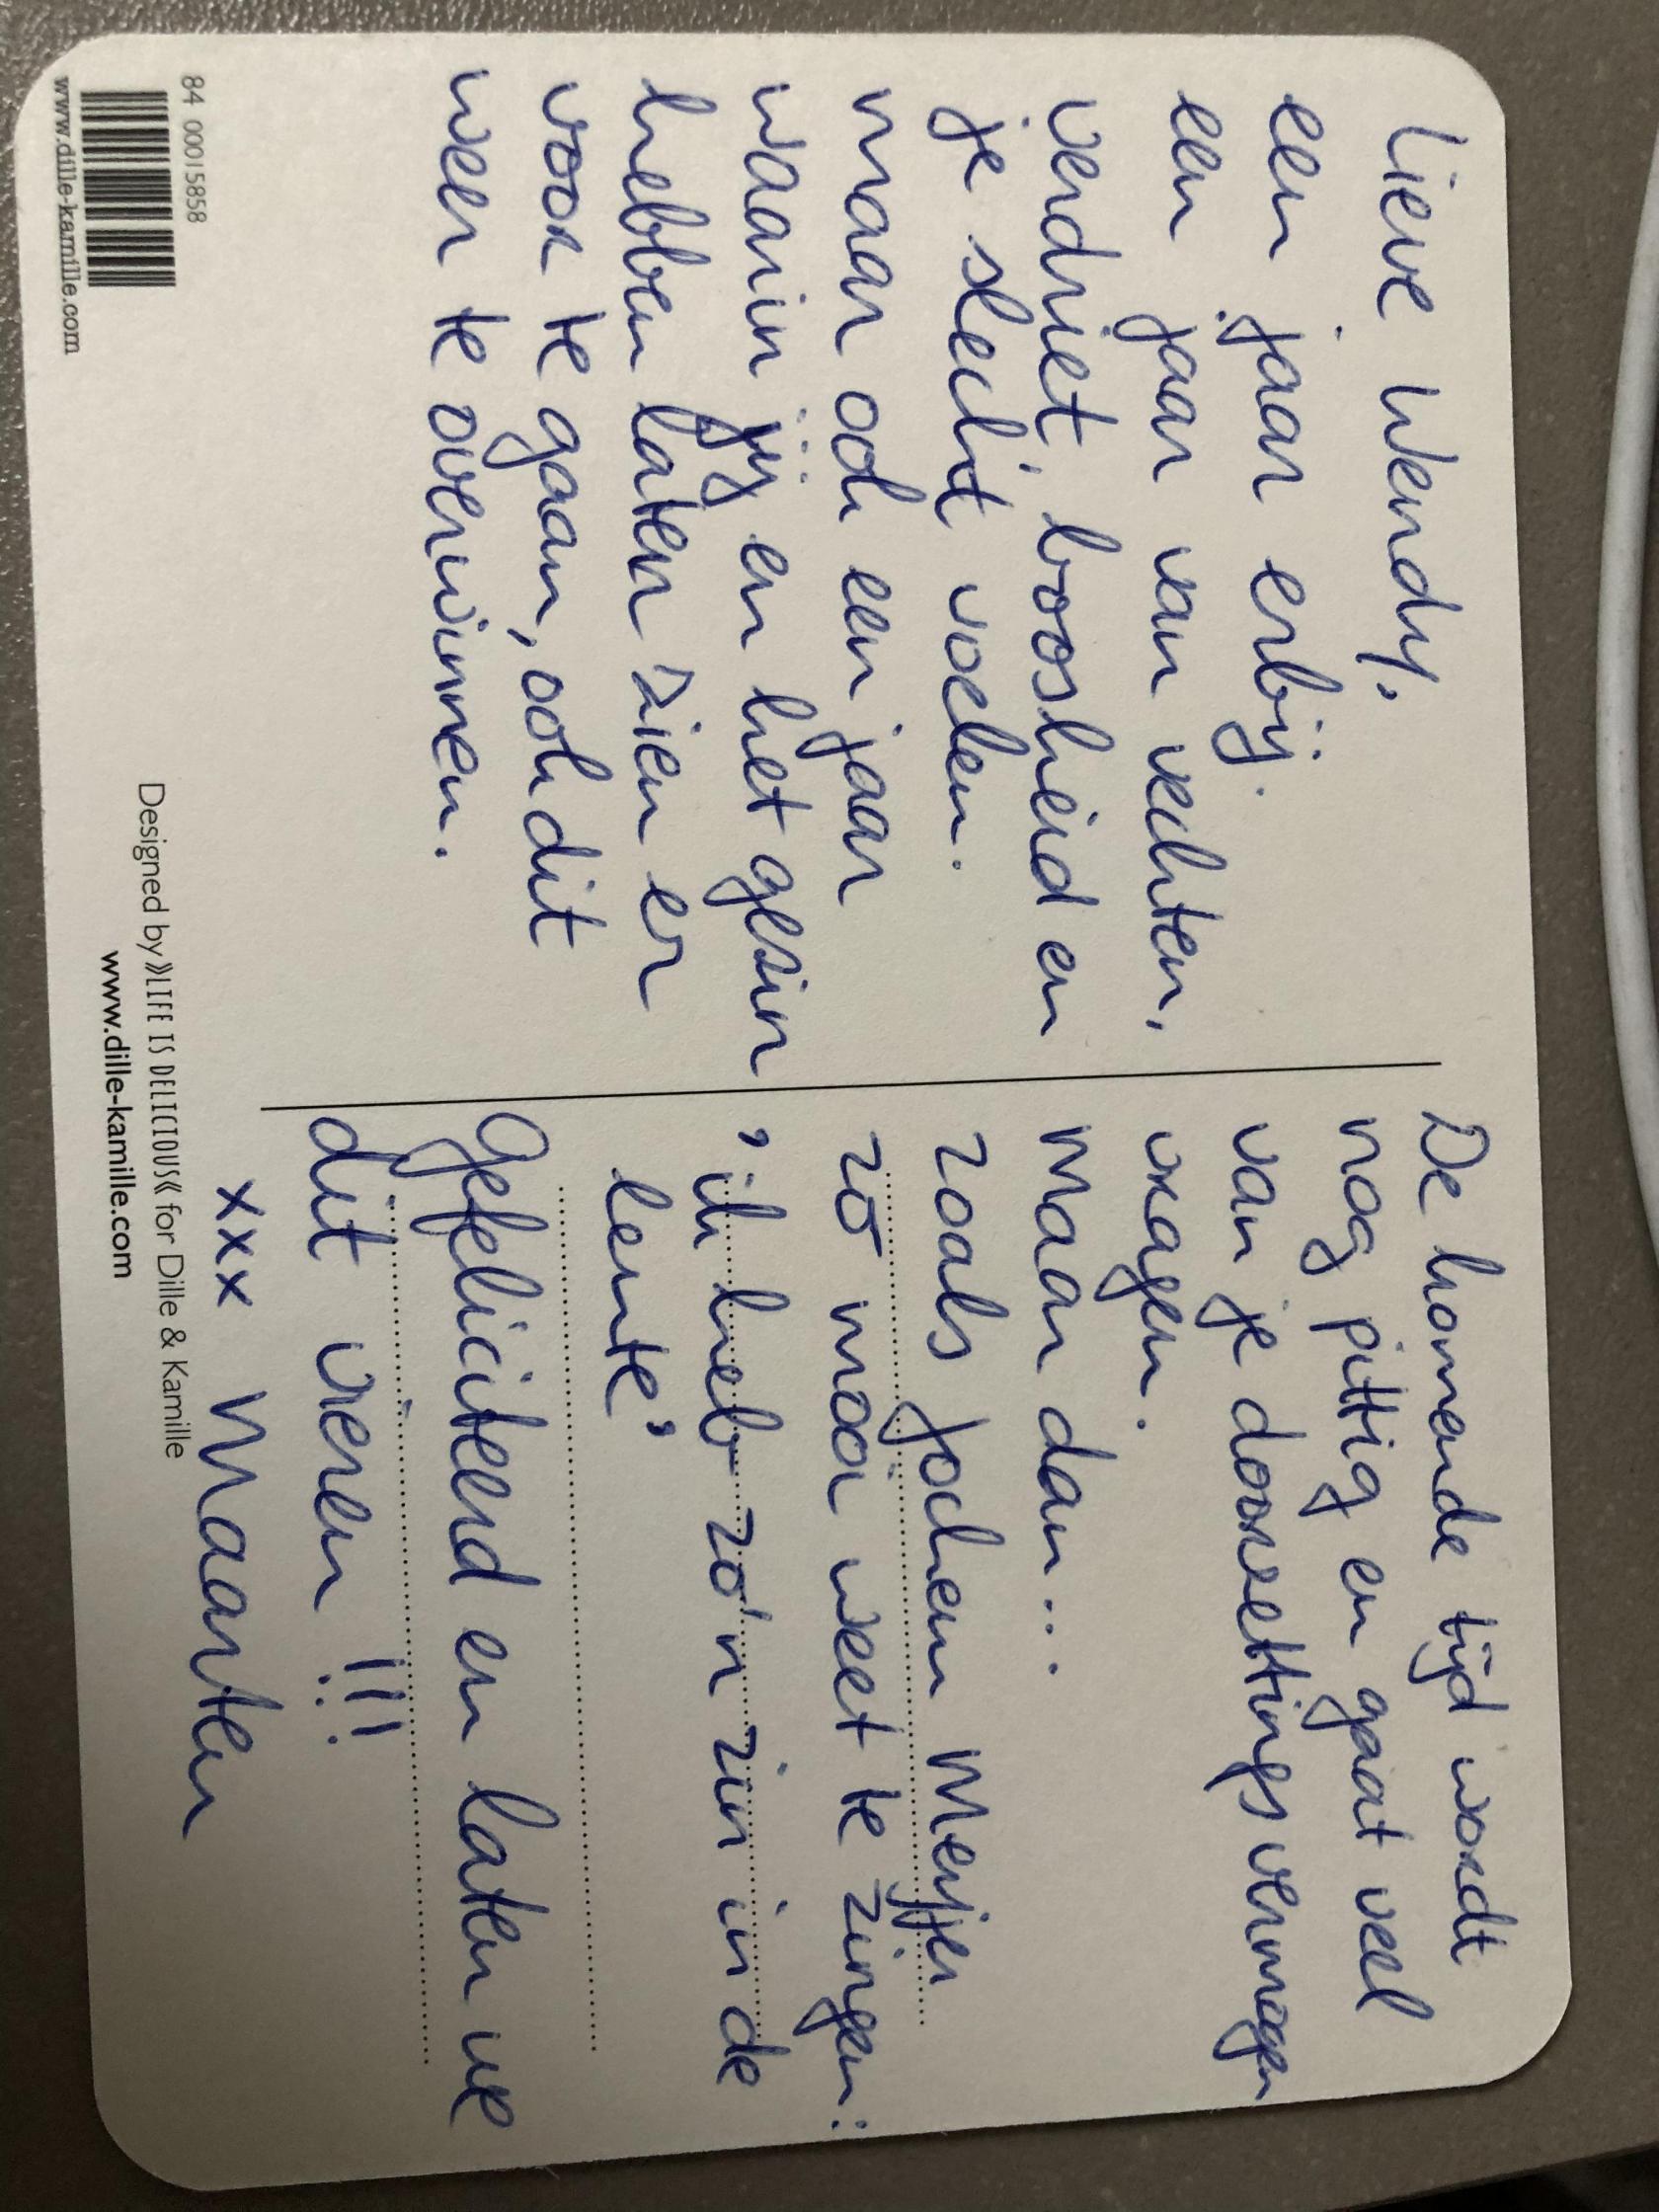 Lieve Wendy,
een jaar erbij.
een jaar van vechten,
verdriet, boosheid en
je slecht voelen.
maar ook een jaar
waarin jij en het gezin
hebben laten zien er
voor te gaan, ook dit
weer te overwinnen.
De komende tijd wordt
nog pittig en gaat veel
van je doorzettingsvermogen
vragen.
Maar dan...
zoals Jochem Meijer
zo mooi weet te zingen:
'ik heb zo'n zin in de
lente'
Gefeliciteerd en laten we
dit vieren !!!
xxx Maarten
84 00015858
www.dille-kamille.com
Designed by »LIFE IS DELICIOUS« for Dille & Kamille
www.dille-kamille.com